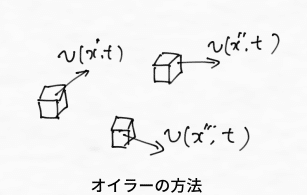 v(x', t)
v(x'', t)
v(x''', t)
オイラーの方法